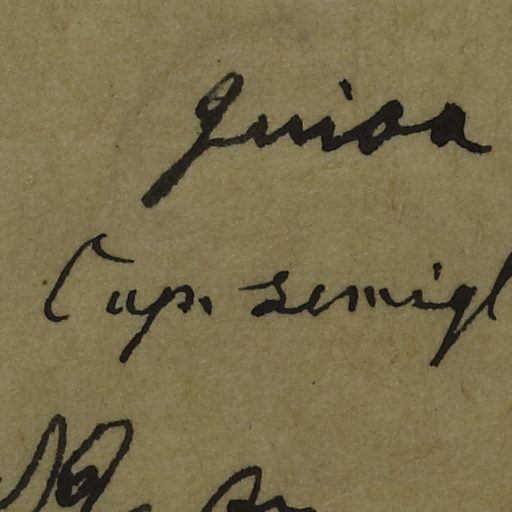 Guioa
Cup. semigl